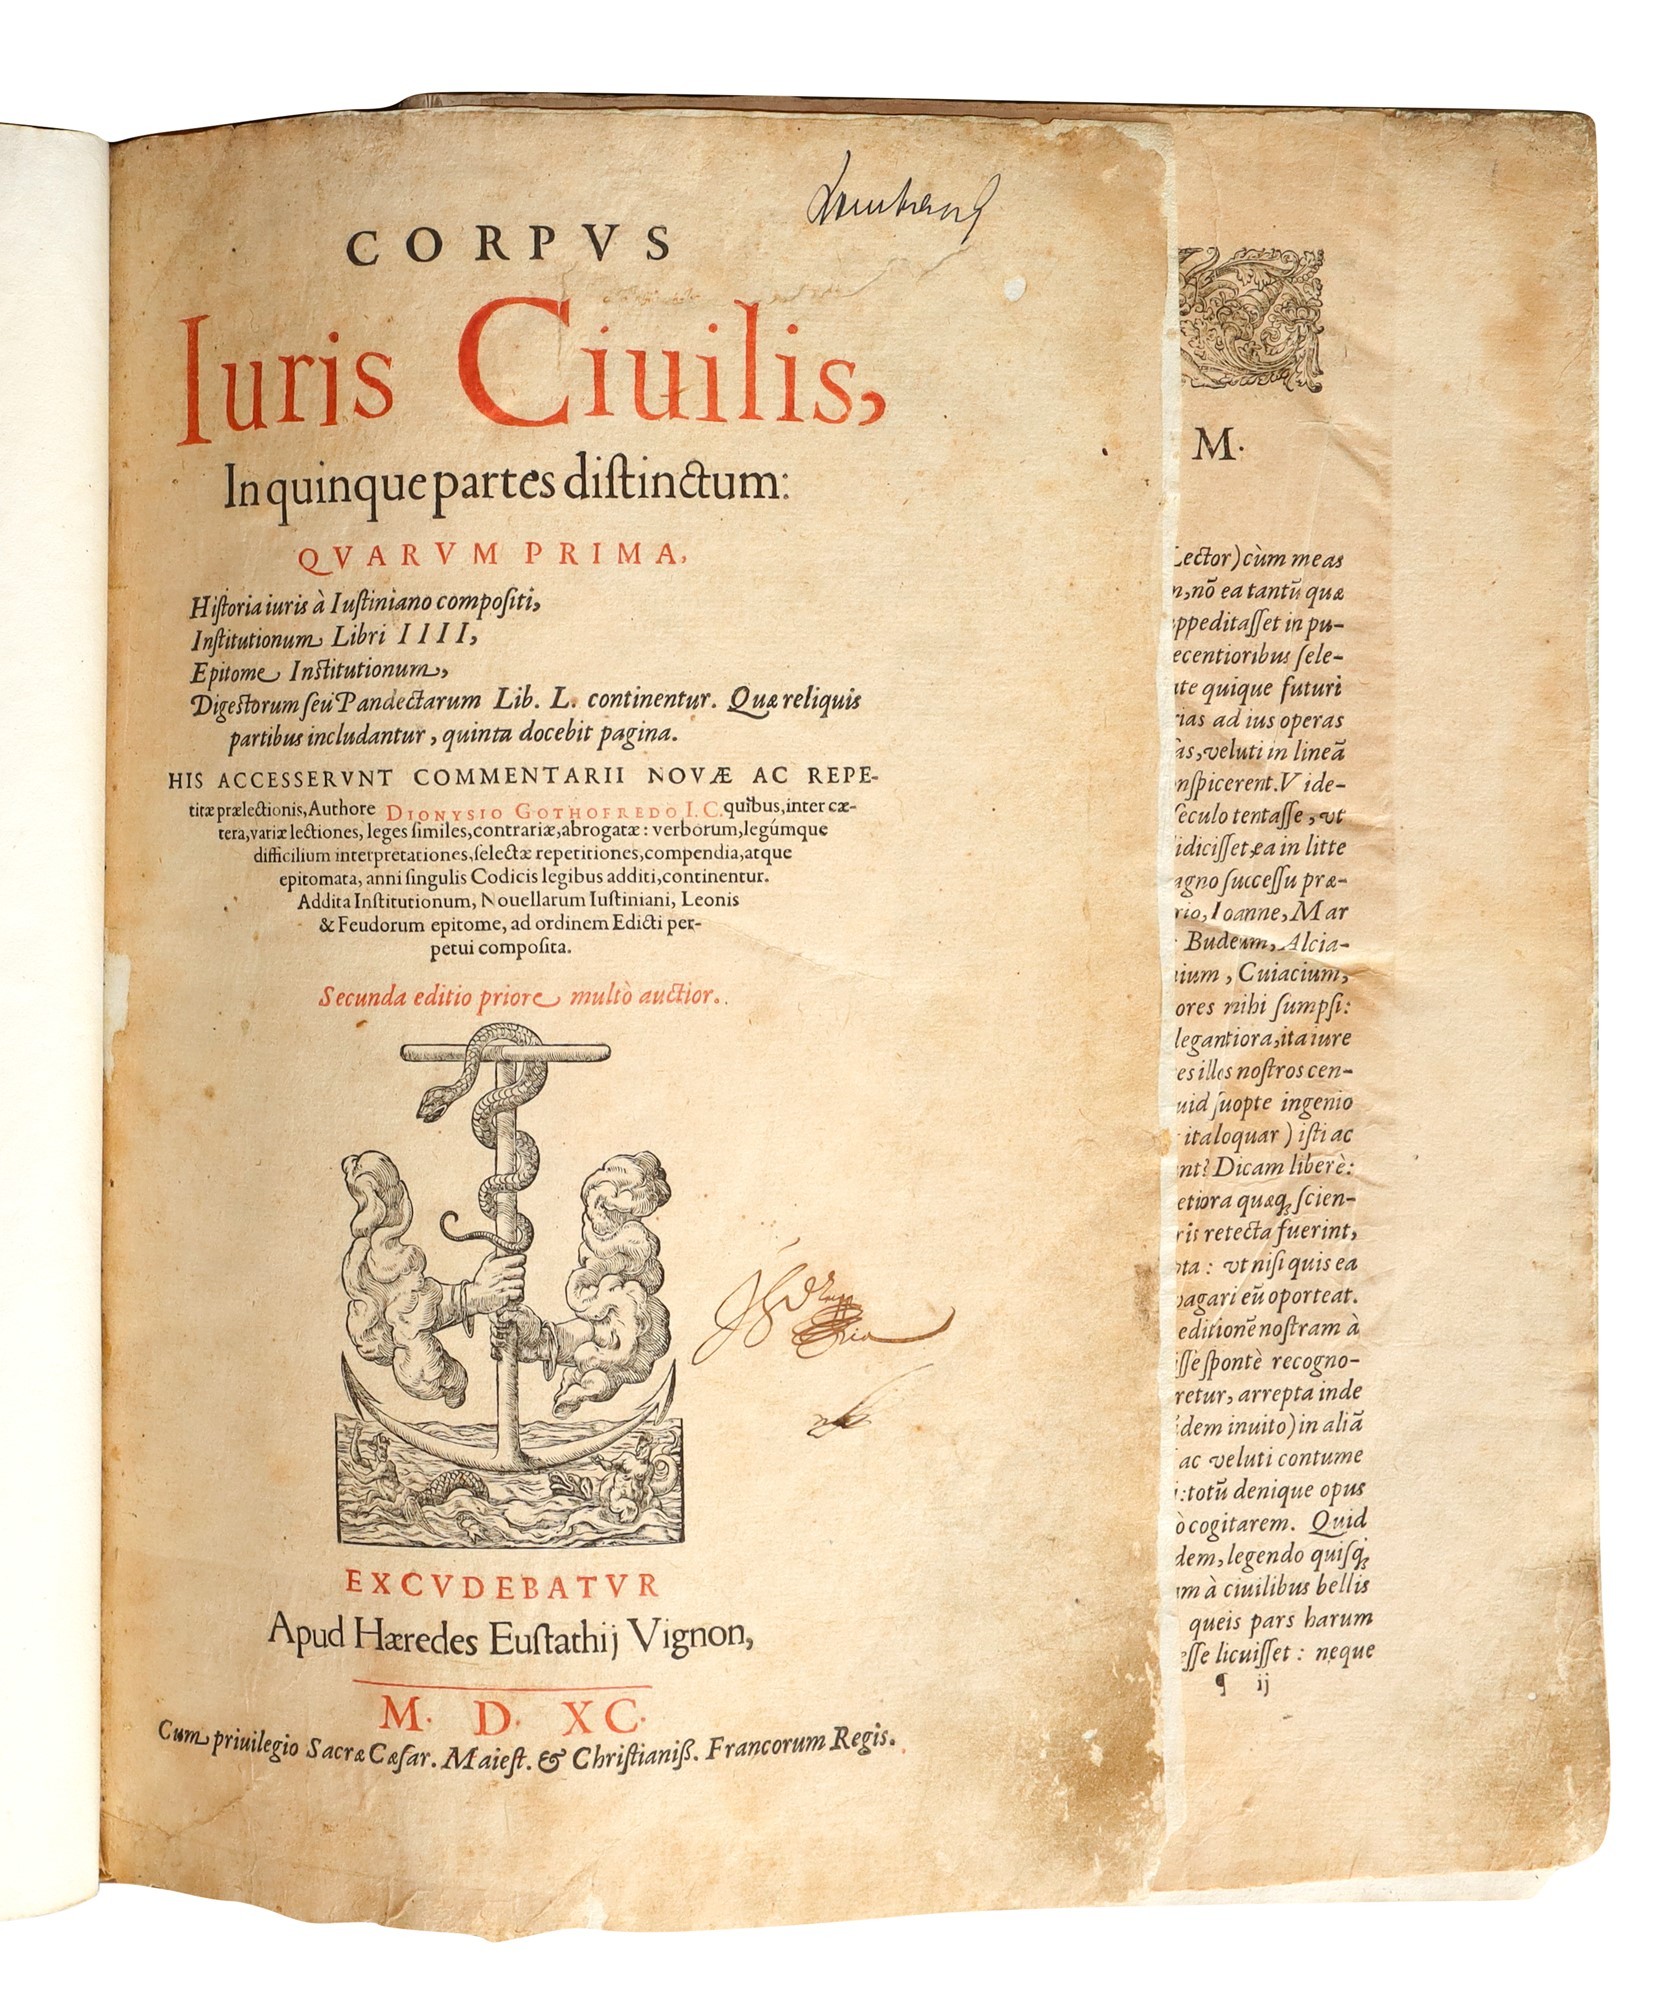 CORPVS
Iuris Ciuilis,
In quinque partes distinctum:
QVARVM PRIMA,
Historia iuris à Iustiniano compositi,
Institutionum Libri IIII,
Epitome Institutionum,
Digestorum seu Pandectarum Lib. L. continentur. Quæ reliquis
partibus includantur, quinta docebit pagina.
HIS ACCESSERVNT COMMENTARII NOVÆ AC REPE-
titæ prælectionis, Authore DIONYSIO GOTHOFREDO I.C. quibus, inter cæ-
tera, variæ lectiones, leges similes, contrariæ, abrogatæ: verborum, legúmque
difficilium interpretationes, selectæ repetitiones, compendia, atque
epitomata, anni singulis Codicis legibus additi, continentur.
Addita Institutionum, Nouellarum Iustiniani, Leonis
& Feudorum epitome, ad ordinem Edicti per-
petui composita.
Secunda editio priore multò auctior.
EXCVDEBATVR
Apud Hæredes Eustathij Vignon,
M. D. XC.
Cum priuilegio Sacræ Cæsar. Maiest. & Christianiß. Francorum Regis.
M.
Lector) cùm meas
nõ ea tantũ quæ
ppeditasset in pu-
ecentioribus sele-
quique futuri
ad ius operas
veluti in lineã
nspicerent. Vide-
seculo tentasse, vt
idicisset, ea in litte
agno successu præ-
rio, Ioanne, Mar
Budeum, Alcia-
Cuiacium,
ores nihi sumpsi:
legantiora, ita iure
es illos nostros cen-
uid suopte ingenio
ita loquar) isti ac
nt? Dicam liberè:
etiora quæq; scien-
ris retecta fuerint,
vt nisi quis ea
pagari eũ oporteat.
editionẽ nostram à
sse spontè recogno-
retur, arrepta inde
dem inuito) in aliã
ac veluti contume
totũ denique opus
ò cogitarem. Quid
dem, legendo quisq;
à ciuilibus bellis
queis pars harum
esse licuisset: neque
¶ ij